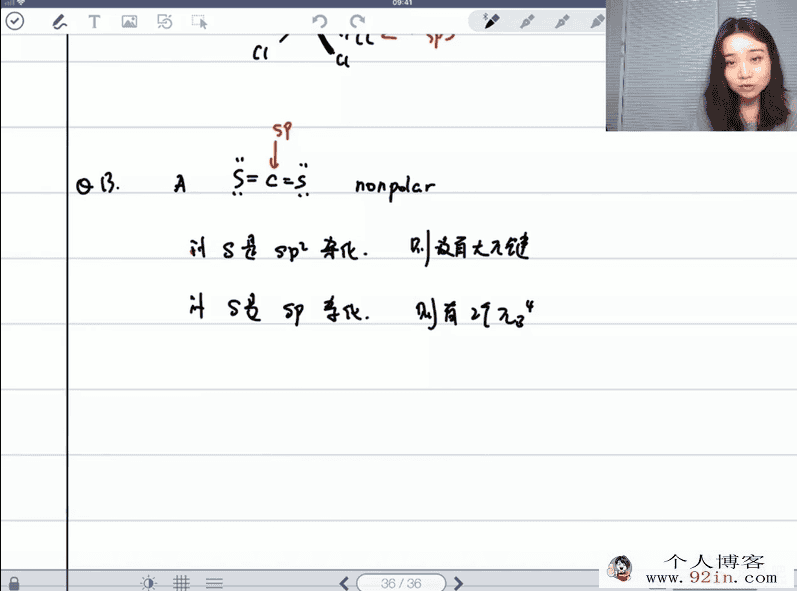 09:41
T
Cl Cl Cl sp3
sp
Q B. A S=C=S nonpolar
计 S是 sp² 杂化. 则没有大π键
计 S是 sp 杂化. 则有 2个 π₃⁴
36 / 36
个人博客
www.92in.com